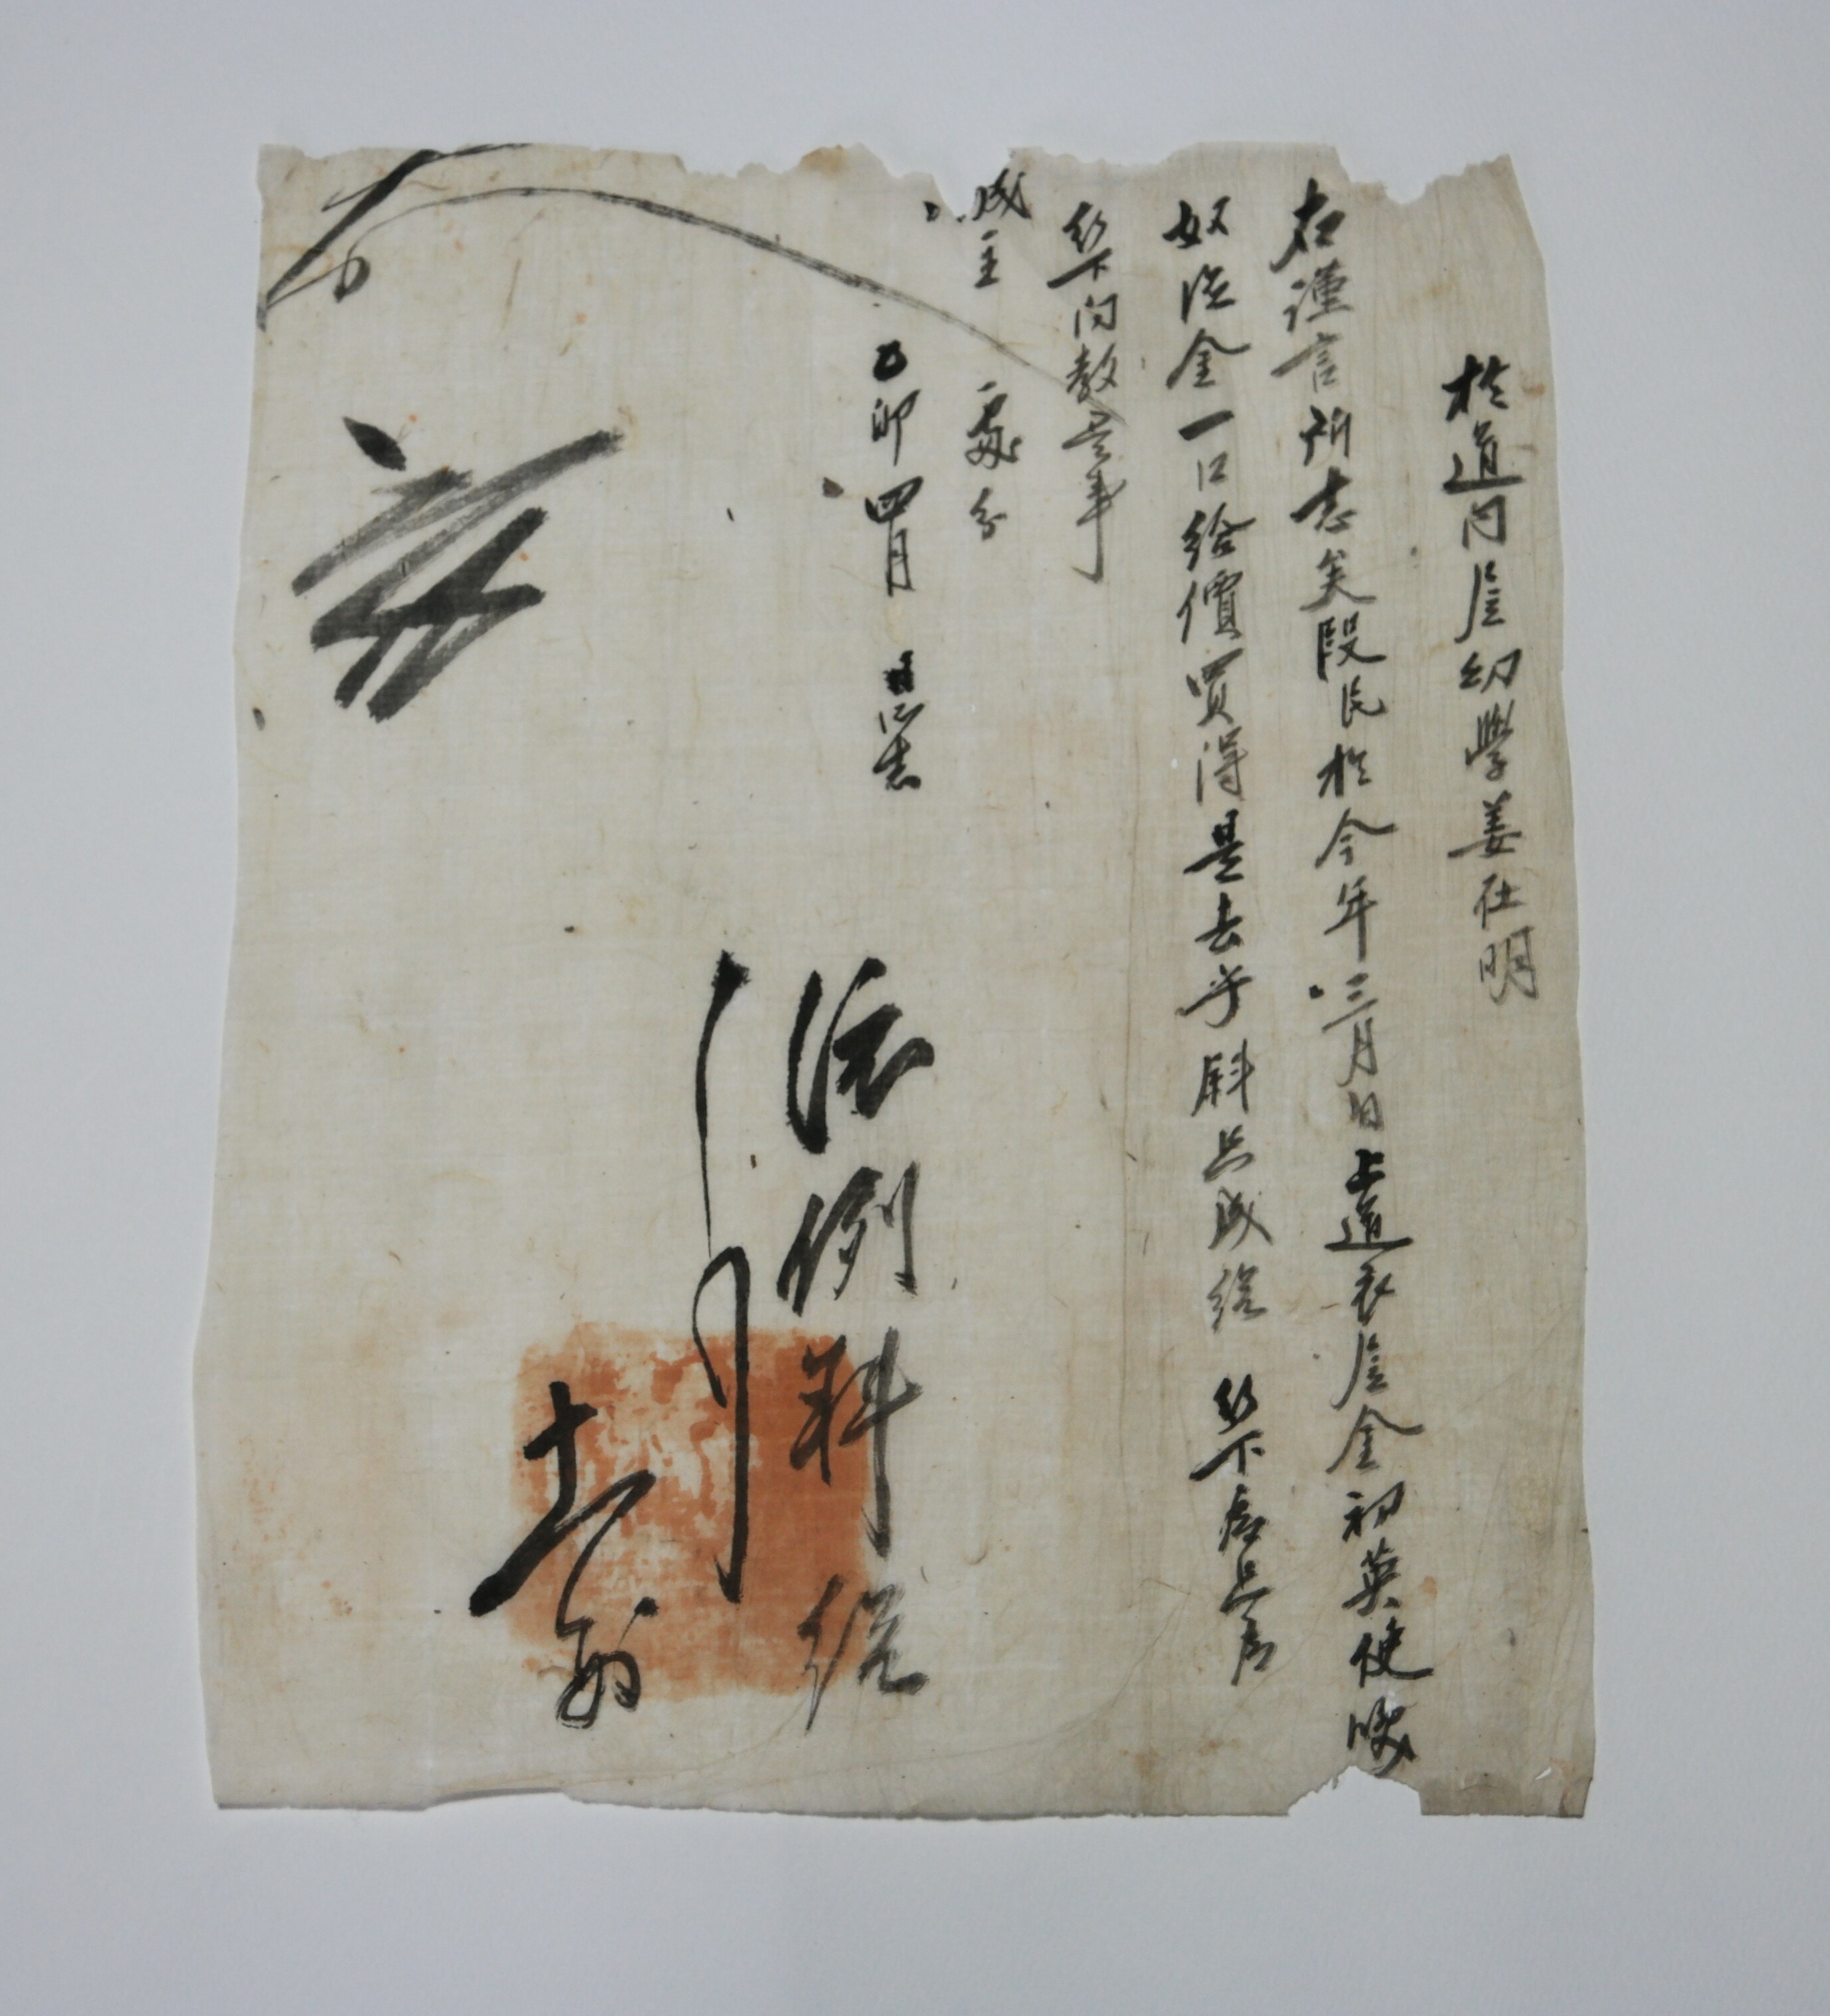 於道內居幼學姜社明
右謹言所志矣段民於今年三月日上道衣居金初英使喚
奴從金一口給價買得是去乎斜只成給 行下爲只爲
行下向敎是事
城主 處分
乙卯四月 日所志
依例斜給